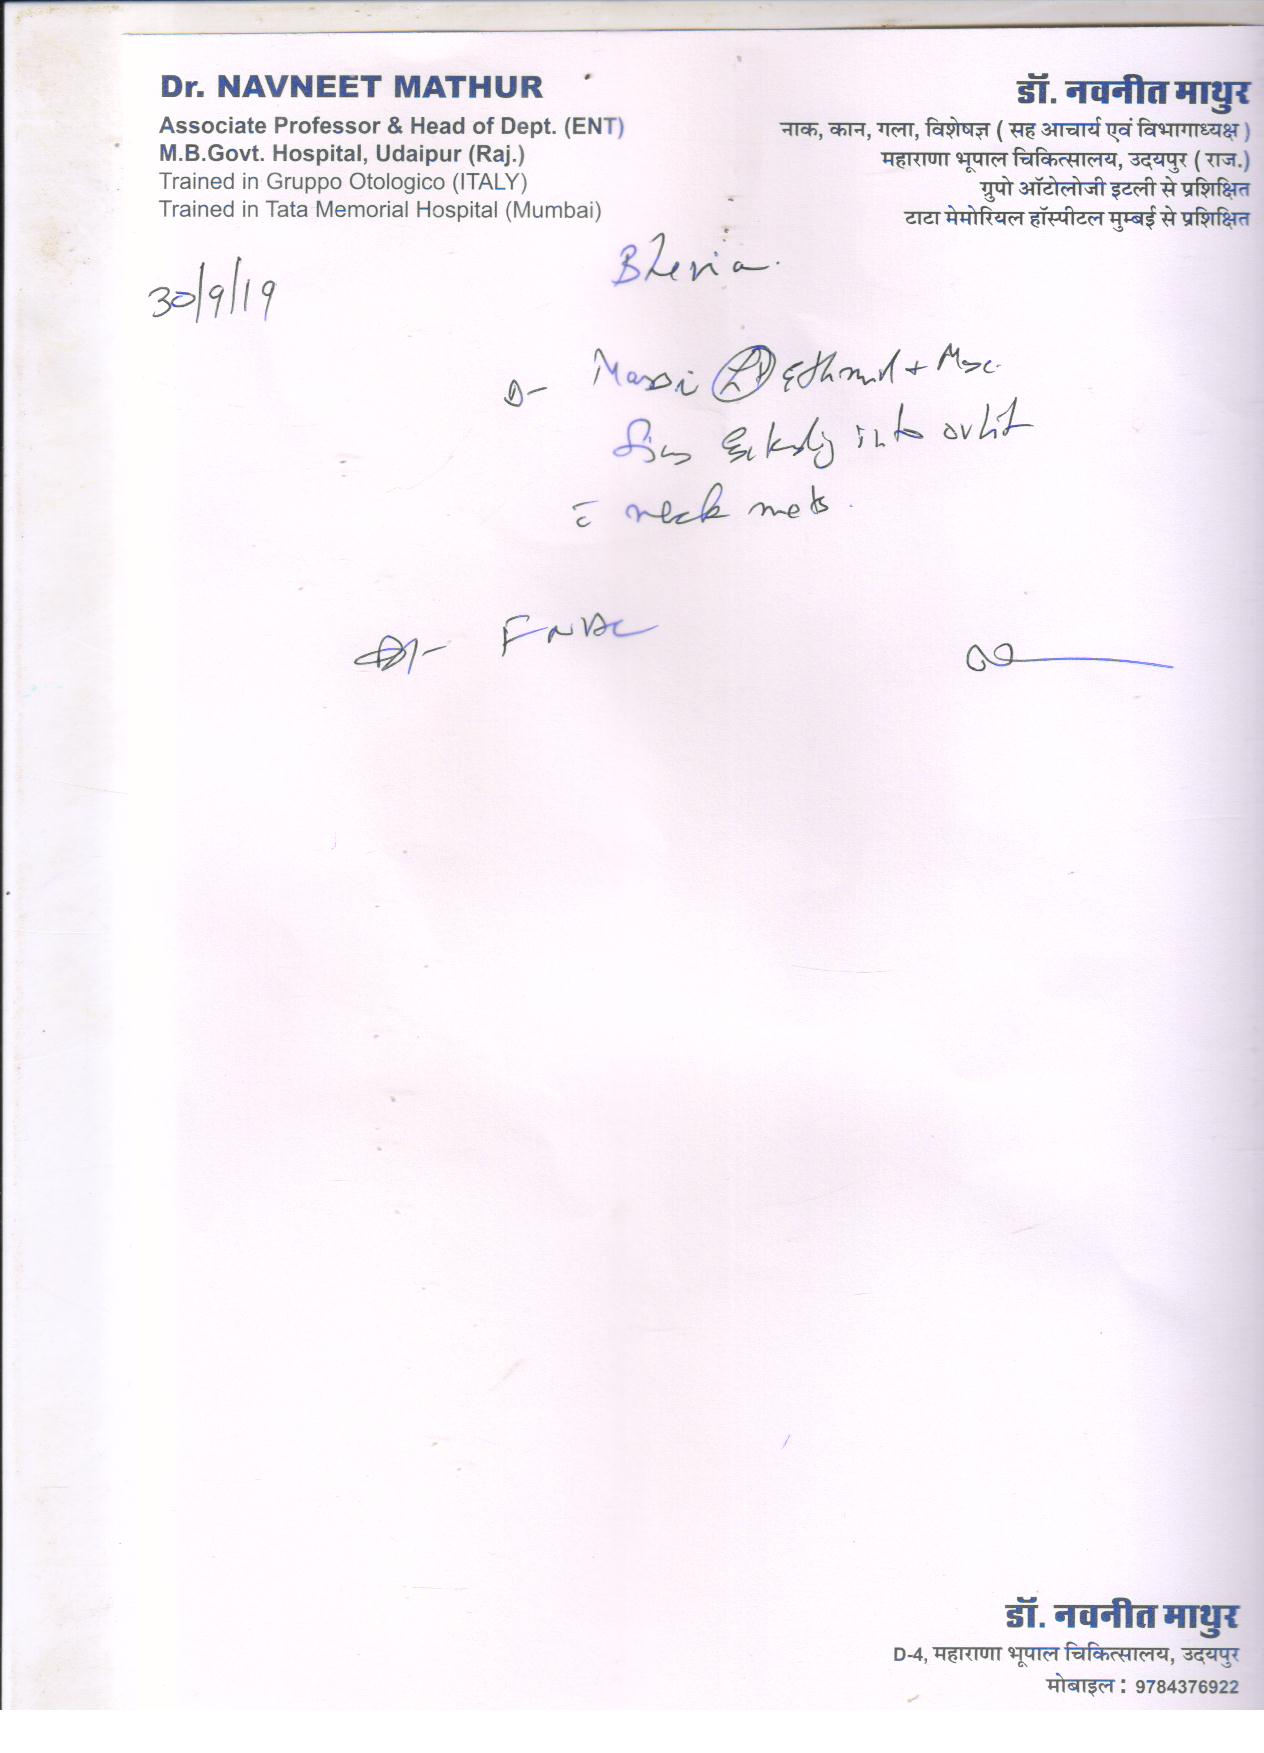 Dr. NAVNEET MATHUR
Associate Professor & Head of Dept. (ENT)
M.B.Govt. Hospital, Udaipur (Raj.)
Trained in Gruppo Otologico (ITALY)
Trained in Tata Memorial Hospital (Mumbai)
डॉ. नवनीत माथुर
नाक, कान, गला, विशेषज्ञ ( सह आचार्य एवं विभागाध्यक्ष )
महाराणा भूपाल चिकित्सालय, उदयपुर ( राज.)
ग्रुपो ऑटोलोजी इटली से प्रशिक्षित
टाटा मेमोरियल हॉस्पीटल मुम्बई से प्रशिक्षित
30/9/19
(L)
into orbit
neck mets.
FNAC
डॉ. नवनीत माथुर
D-4, महाराणा भूपाल चिकित्सालय, उदयपुर
मोबाइल : 9784376922